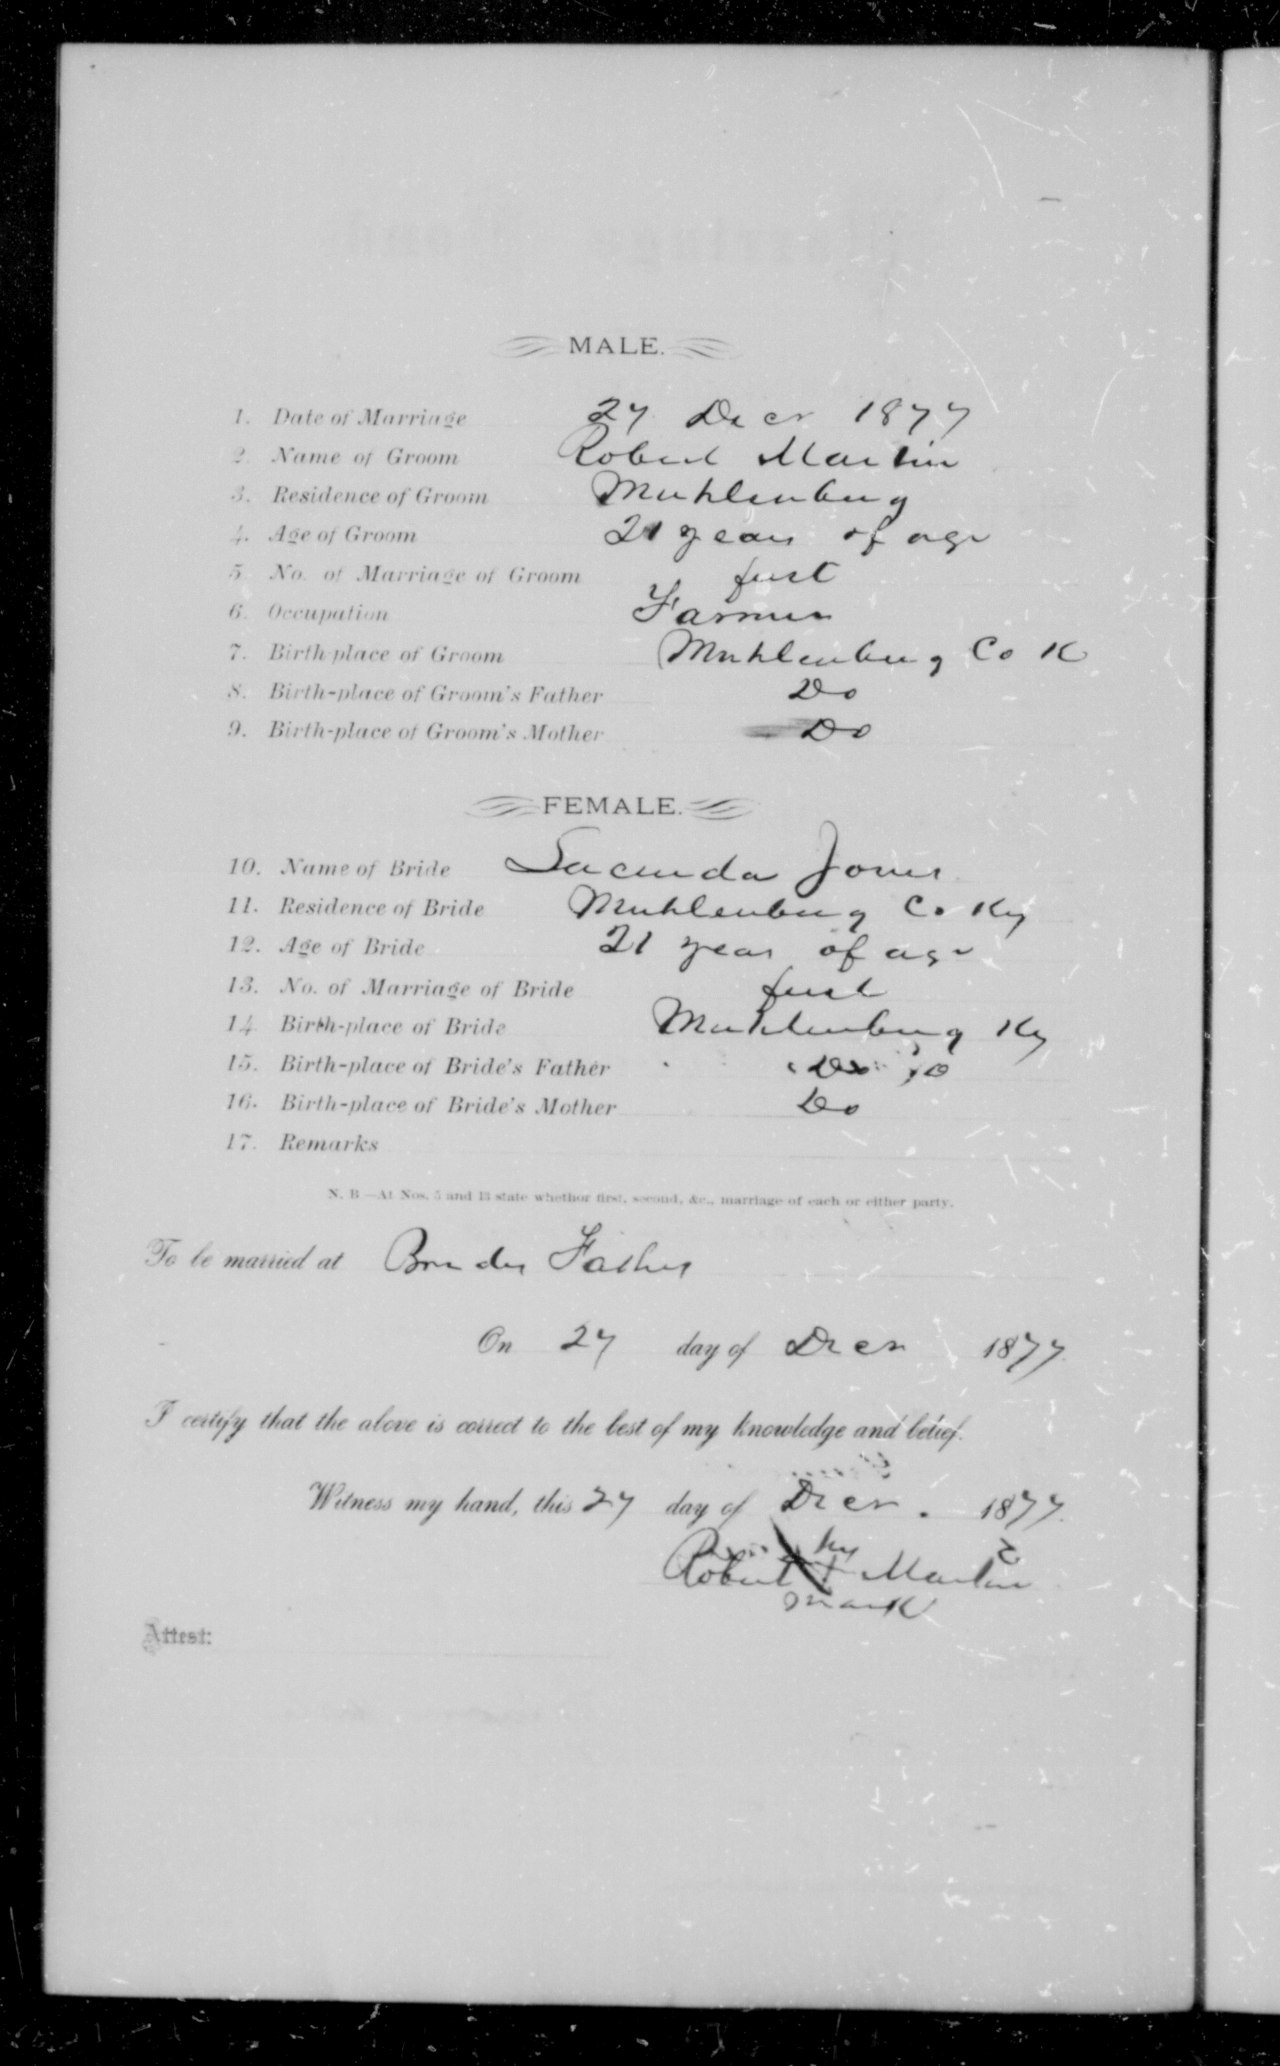 MALE.
1. Date of Marriage 27 Decr 1877
2. Name of Groom Robert Martin
3. Residence of Groom Muhlenburg
4. Age of Groom 21 years of age
5. No. of Marriage of Groom first
6. Occupation Farmer
7. Birth-place of Groom Muhlenburg Co K
8. Birth-place of Groom's Father Do
9. Birth-place of Groom's Mother Do
FEMALE.
10. Name of Bride Lucinda Jones
11. Residence of Bride Muhlenburg Co Ky
12. Age of Bride 21 year of age
13. No. of Marriage of Bride first
14 Birth-place of Bride Muhlenburg Ky
15. Birth-place of Bride's Father Do
16. Birth-place of Bride's Mother Do
17. Remarks
N. B.—At Nos. 5 and 13 state whether first, second, &c., marriage of each or either party.
To be married at Brides Fathers
On 27 day of Decr 1877.
I certify that the above is correct to the best of my knowledge and belief.
Witness my hand, this 27 day of Decr. 1877.
his
Robert X Martin
mark
Attest: